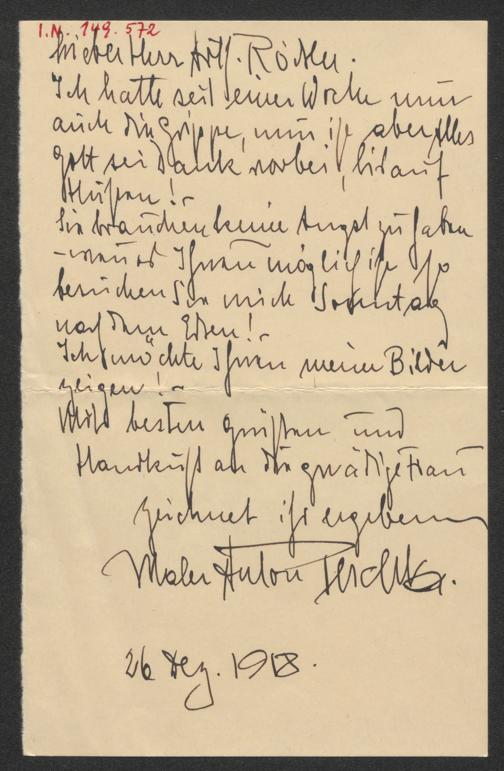 I.N. 149.572
Lieber Herr Arth. Rößler.
Ich hatte seit einer Woche nun
auch die Grippe, nun ist aber Alles
Gott sei Dank vorbei, bis auf
Husten!-
Sie brauchen keine Angst zu haben
- wenn es Ihnen möglich ist so
besuchen Sie mich Sonntag
nach dem Essen!-
Ich möchte Ihnen meine Bilder
zeigen!-
Mit besten Grüßen und
Handkuß an die gnädige Frau
zeichnet ihr ergebener
Maler Anton Peschka.
26 Dez. 1918.